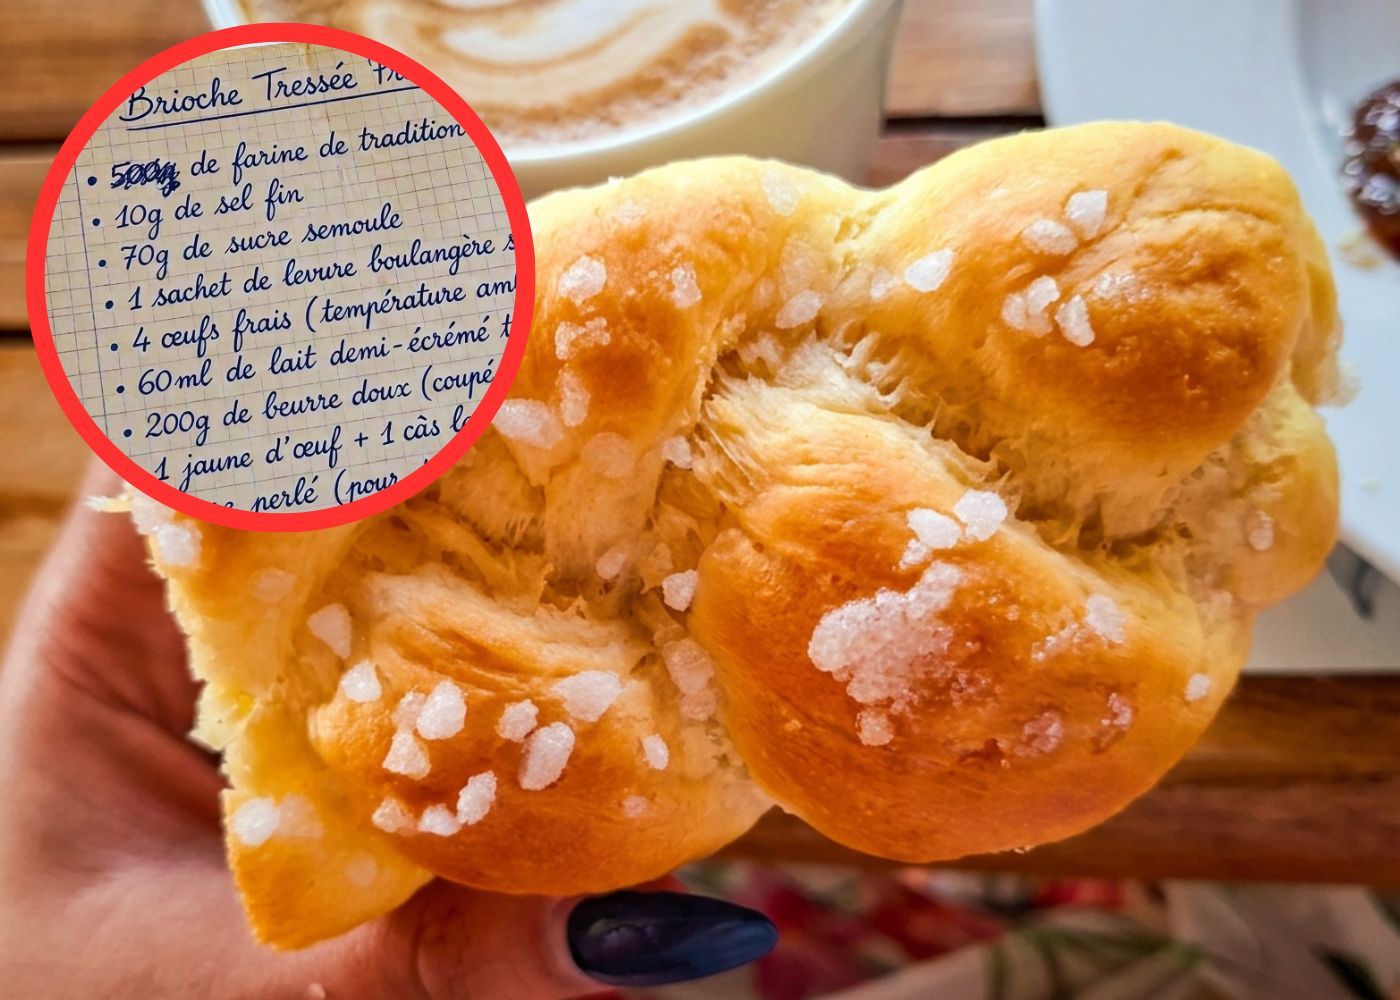 Brioche Tressée
• de farine de tradition
• 10g de sel fin
• 70g de sucre semoule
• 1 sachet de levure boulangère
• 4 œufs frais (température
• 60ml de lait demi-écrémé
• 200g de beurre doux (coupé
1 jaune d'œuf + 1 càs
perlé (pour